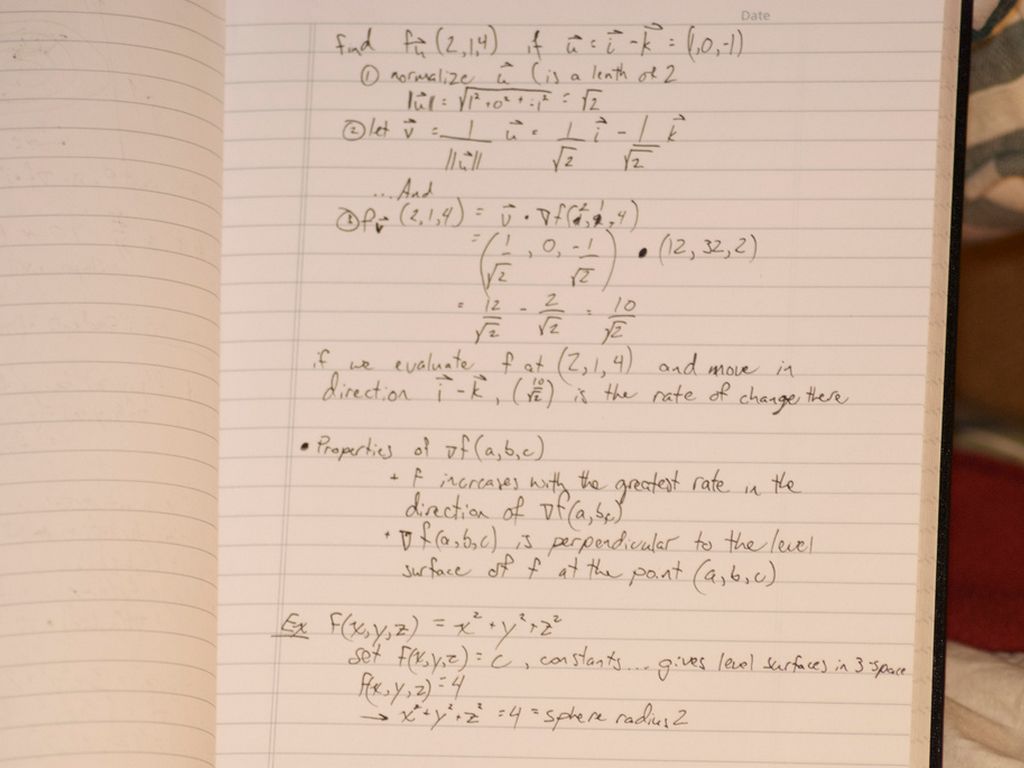 Date
Find f_u⃗ (2,1,4) if u⃗ = i⃗ - k⃗ = (1,0,-1)
① normalize u⃗ (is a lenth of 2
|u⃗| = √1² + 0² + -1² = √2
② let v⃗ = 1/||u⃗|| u⃗ = 1/√2 i⃗ - 1/√2 k⃗
...And
③ f_v⃗ (2,1,4) = v⃗ • ∇f(2,1,4)
= (1/√2, 0, -1/√2) • (12, 32, 2)
= 12/√2 - 2/√2 = 10/√2
if we evaluate f at (2,1,4) and move in
direction i⃗ - k⃗, (10/√2) is the rate of change there
• Properties of ∇f(a,b,c)
+ f increases with the greatest rate in the
direction of ∇f(a,b,c)
+ ∇f(a,b,c) is perpendicular to the level
surface of f at the point (a,b,c)
Ex f(x,y,z) = x² + y² + z²
set f(x,y,z) = c, constants... gives level surfaces in 3-space
f(x,y,z) = 4
→ x² + y² + z² = 4 = sphere radius 2